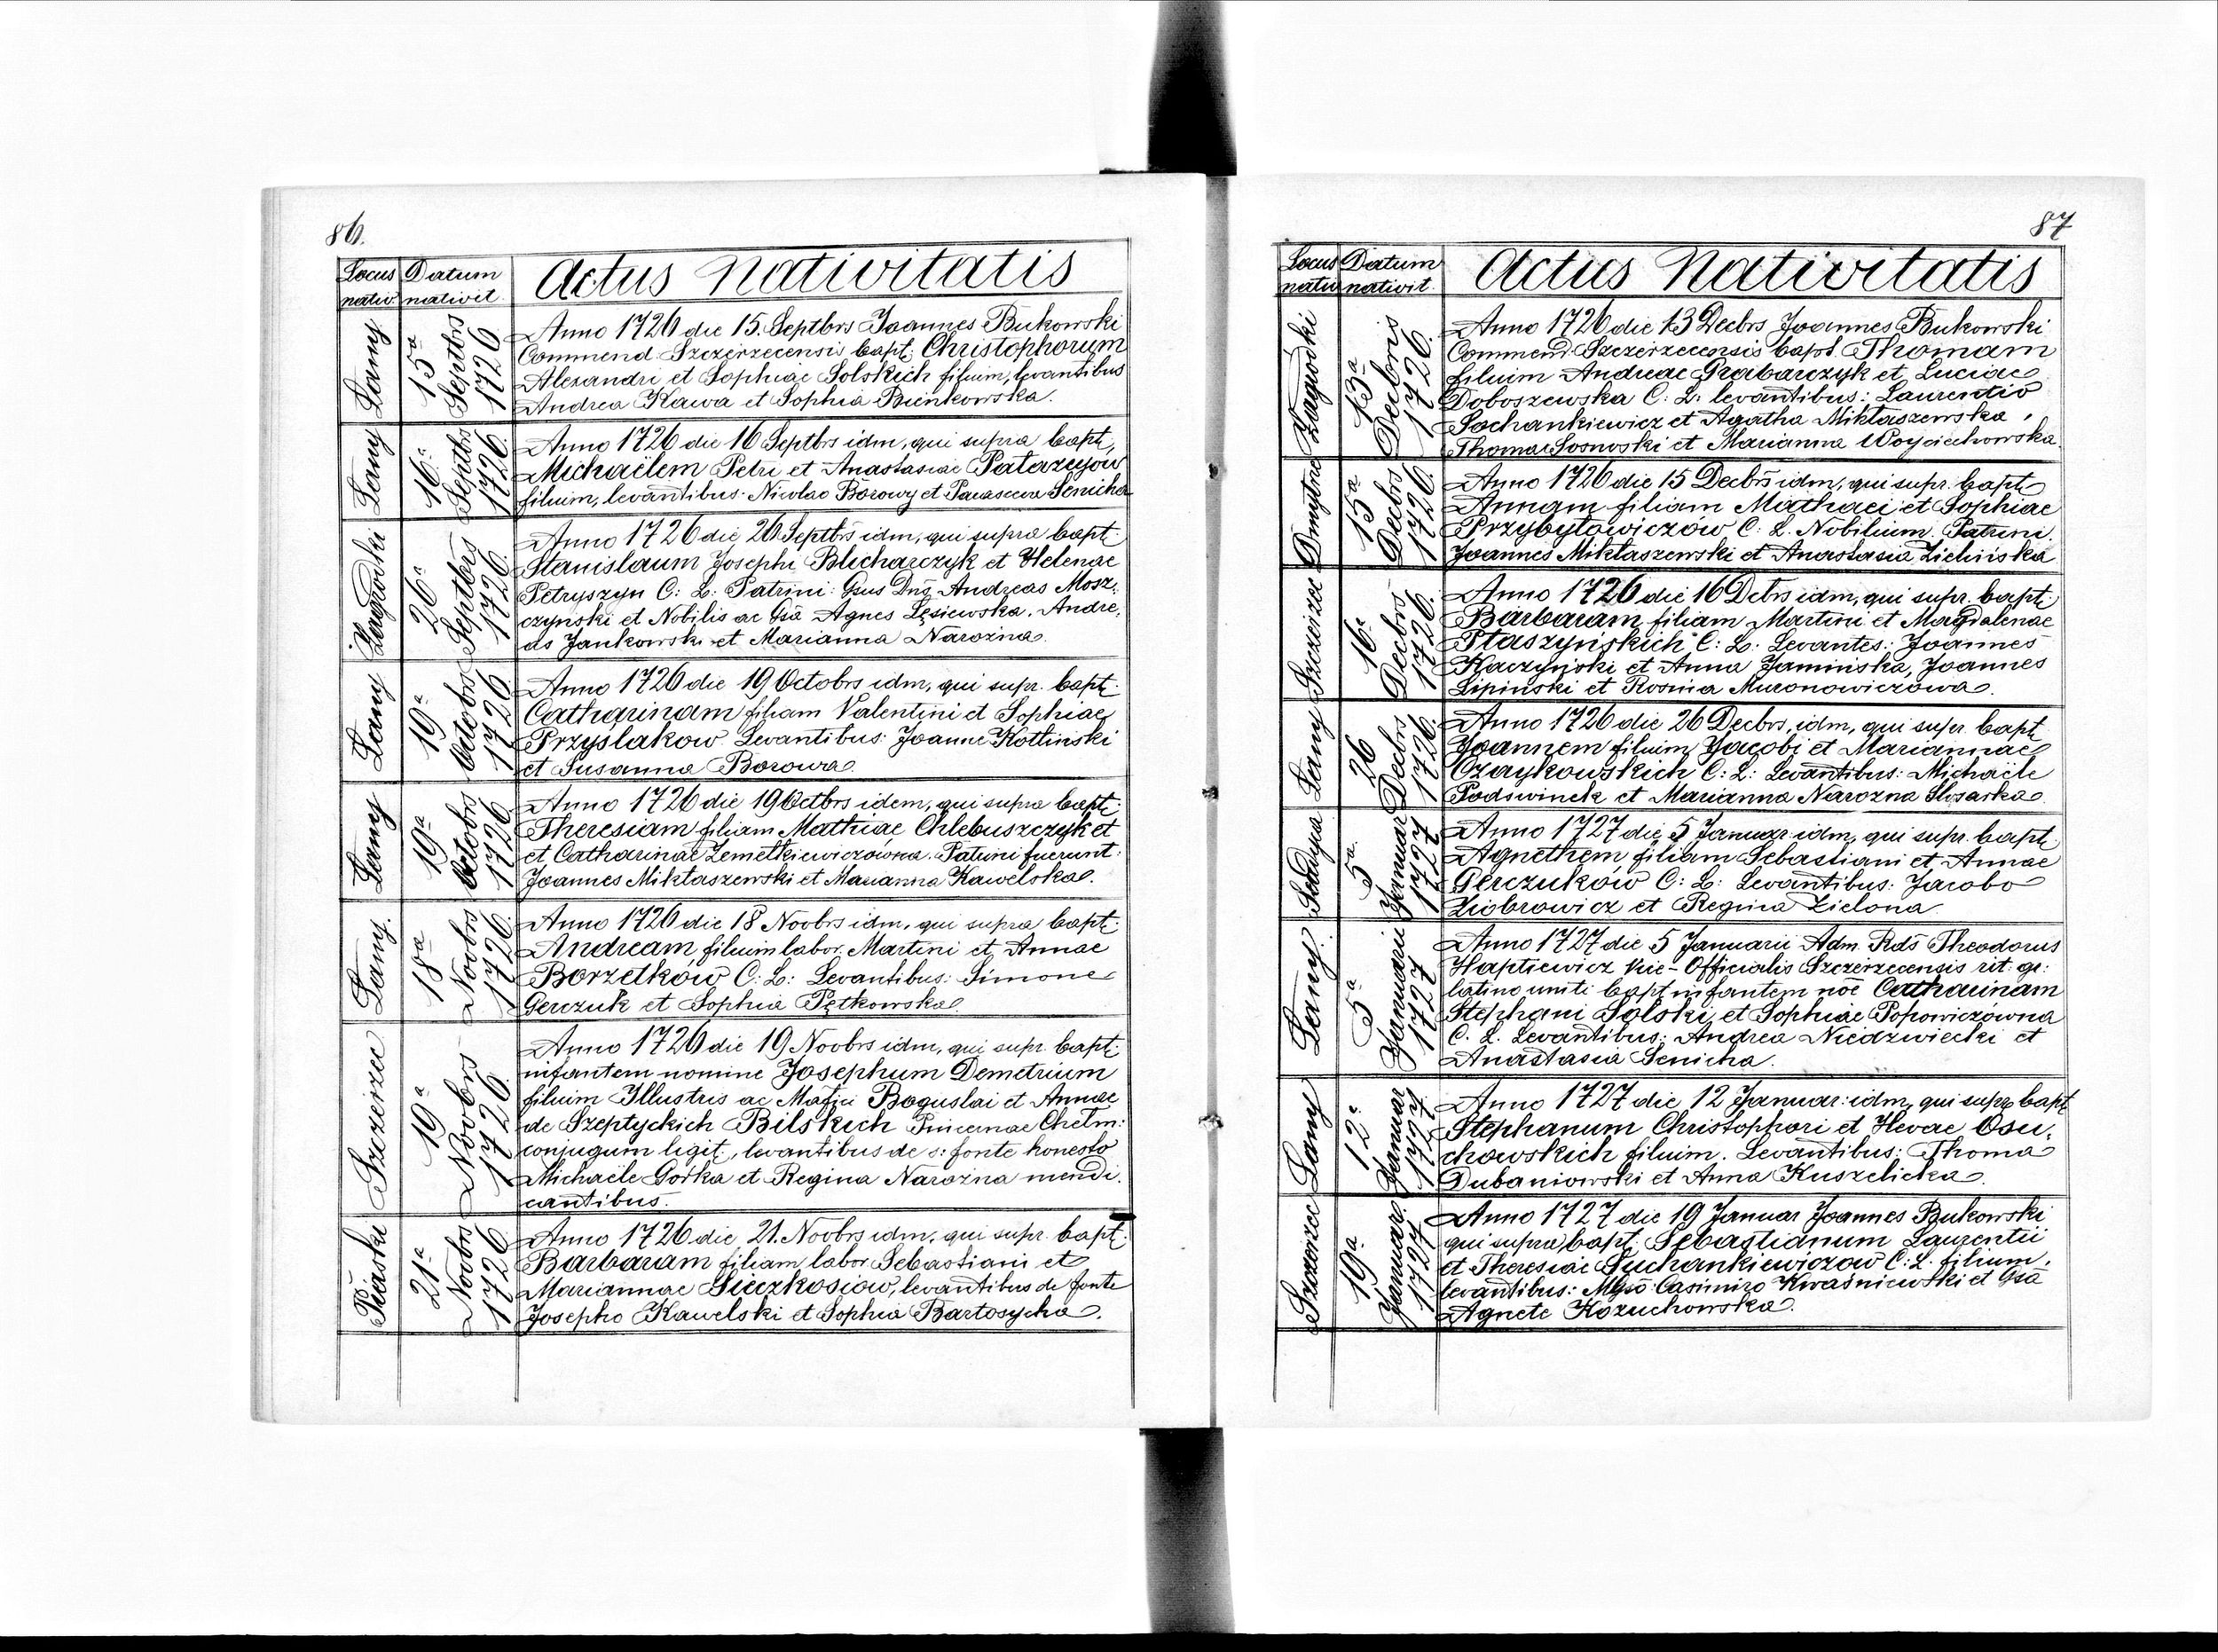 86.
Locus nativ.
Datum nativit.
Actus Nativitatis
Łany
15ª Septbrs 1726
Anno 1726 die 15. Septbrs Joannes Bukowski
Commend Szczerzecensis bapt: Christophorum
Alexandri et Sophiae Solskich filium, levantibus
Andrea Kawa et Sophia Bienkowska.
Łany
16ª Septbr 1726
Anno 1726 die 16 Septbrs idm, qui supra bapt,
Michaëlem Petri et Anastasiae Patarzyjow
filium, levantibus: Nicolao Borowy et Parascewa Senicha
Zagrodki
26ª Septbrs 1726.
Anno 1726 die 26 Septbrs idm, qui supra bapt:
Stanislaum Josephi Blicharczyk et Helenae
Petryszyn C: L: Patrini: Gsus Dns Andreas Mosz:
czynski et Nobilis ac Gsā Agnes Lęsiewska. Andre,
as Jankowski et Marianna Narożna.
Łany
19ª Octobrs 1726
Anno 1726 die 19 Octobrs idm, qui supr. bapt:
Catharinam filiam Valentini et Sophiae
Przyslakow Levantibus: Joanne Kotlinski
et Susanna Borowa.
Łany
19ª Octobrs 1726
Anno 1726 die 19 Octbrs idem, qui supra bapt:
Theresiam filiam Mathiae Chlebuszczyk et
et Catharinae Zemełkiewiczówna. Patrini fuerunt:
Joannes Miktaszewski et Marianna Kawelska.
Łany.
18ª Novbrs 1726.
Anno 1726 die 18 Novbrs idm, qui supra bapt:
Andream, filium labor. Martini et Annae
Borzetków C: L: Levantibus: Simone
Gerczuk et Sophia Pętkowska.
Szczerzec
19ª Novbrs 1726.
Anno 1726 die 19 Novbrs idm, qui supr. bapt:
infantem nomine Josephum Demetrium
filium Illustris ac Mafici Boguslai et Annae
de Szeptyckich Bilskich Pincernae Chełm:
conjugum legit:, levantibus de s: fonte honesto
Michaële Gorka et Regina Narożna mendi.
cantibus.
Piaski
21ª Novbrs 1726
Anno 1726 die 21. Novbrs idm, qui supr. bapt:
Barbaram filiam labor Sebastiani et
Mariannae Sieczkosiow, levantibus de fonte
Josepho Kawelski et Sophia Bartosycha.
87
Locus nativ
Datum nativit.
Actus Nativitatis
Zagrodki
13ª Decbris 1726.
Anno 1726 die 13 Decbrs Joannes Bukowski
Commend: Szczerzecensis bapt. Thomam
filium Andreae Grabarczyk et Luciae
Doboszewska C: L: levantibus: Laurentio
Sochankiewicz et Agatha Miktaszewska,
Thoma Sosnoski et Marianna Woyciechowska.
Dmytrze
15ª Decbrs 1726.
Anno 1726 die 15 Decbrs idm, qui supr. bapt:
Annam filiam Mathaei et Sophiae
Przybytowiczów C: L. Nobilium. Patrini.
Joannes Miktaszewski et Anastasia Zielinska
Szczerzec
16ª Decbrs 1726.
Anno 1726 die 16 Debrs idm, qui supr. bapt:
Barbaram, filiam Martini et Magdalenae
Ptaszyńskich C: L: Levantes: Joannes
Kaczyński et Anna Jaminska, Joannes
Lipinski et Rosina Muronowiczowa.
Łany
26 Decbrs 1726.
Anno 1726 die 26 Decbrs, idm, qui supr. bapt
Joannem filium Jacobi et Mariannae
Czaykowskich C: L: Levantibus: Michaële
Podswinek et Marianna Narozna Slosarka.
5ª Januar 1727
Anno 1727 die 5 Januar idm, qui supr. bapt.
Agnethem filiam Sebastiani et Annae
Gerczuków C: L: Levantibus: Jacobo
Ziobrowicz et Regina Zielona
Łany.
5ª Januarii 1727
Anno 1727 die 5 Januarii Adm. Rds Theodorus
Haptiewicz Vice-Officialis Szczerzecensis rit. gr:
latino uniti bapt infantem noē Catharinam
Stephani Solski, et Sophiae Popowiczówna
C. L. Levantibus: Andrea Niedzwiecki et
Anastasia Senicha.
Łany
12ª Januar 1727
Anno 1727 die 12 Januar: idm, qui supra bapt
Stephanum Christophori et Hevae Osu,
chowskich filium. Levantibus: Thoma
Dubaniowski et Anna Kuszelicka.
Szczerzec
19ª Januar. 1727
Anno 1727 die 19 Januar Joannes Bukowski
qui supra bapt. Sebastianum Laurentii
et Theresiae Suchankiewiczow C: L. filium,
levantibus: Mgsō Casimiro Kwaśniewski et Gsā
Agnete Kozuchowska.